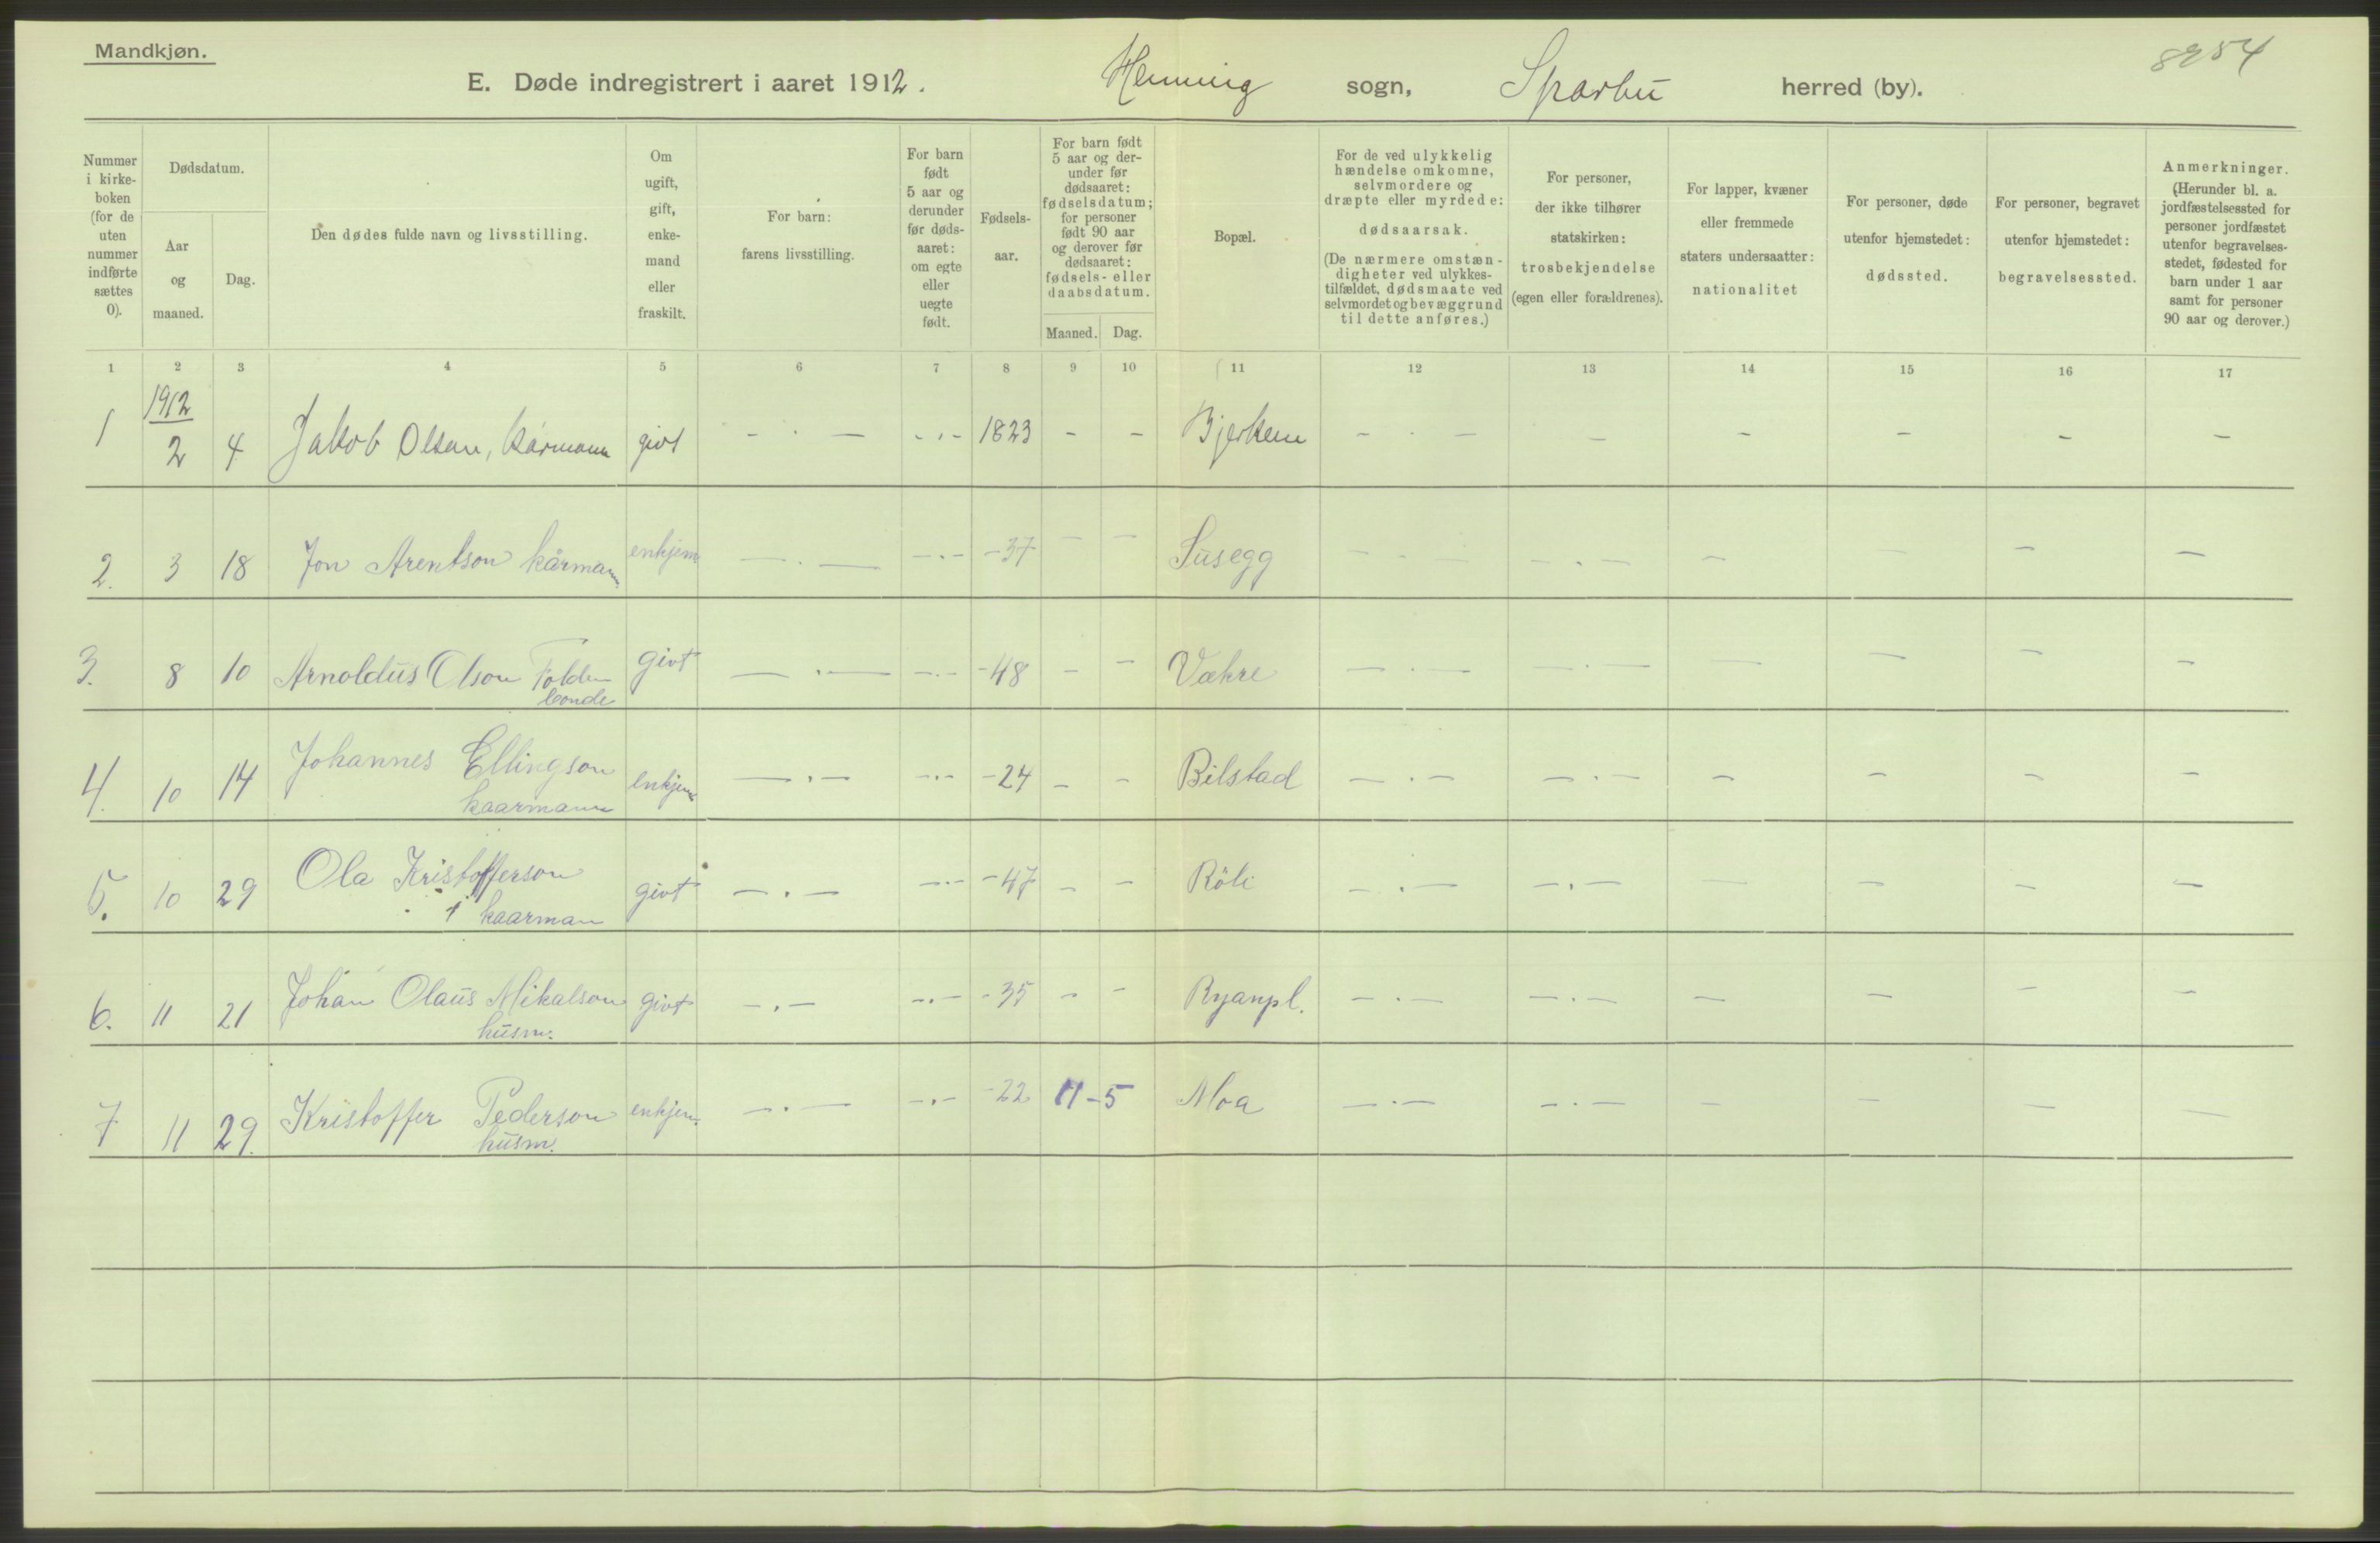 Mandkjøn.
8254
E. Døde indregistrert i aaret 1912. Henning sogn, Sparbu herred (by).
Nummer i kirkeboken (for de uten nummer indførte sættes 0).
Dødsdatum.
Aar og maaned.
Dag.
Den dødes fulde navn og livsstilling.
Om ugift, gift, enkemand eller fraskilt.
For barn: farens livsstilling.
For barn født 5 aar og derunder før dødsaaret: om egte eller uegte født.
Fødselsaar.
For barn født 5 aar og derunder før dødsaaret: fødselsdatum; for personer født 90 aar og derover før dødsaaret: fødsels- eller daabsdatum.
Maaned. Dag.
Bopæl.
For de ved ulykkelig hændelse omkomne, selvmordere og dræpte eller myrdede: dødsaarsak. (De nærmere omstændigheter ved ulykkestilfældet, dødsmaate ved selvmordet og bevæggrund til dette anføres.)
For personer, der ikke tilhører statskirken: trosbekjendelse (egen eller forældrenes).
For lapper, kvæner eller fremmede staters undersaatter: nationalitet
For personer, døde utenfor hjemstedet: dødssted.
For personer, begravet utenfor hjemstedet: begravelsessted.
Anmerkninger. (Herunder bl. a. jordfæstelsessted for personer jordfæstet utenfor begravelsesstedet, fødested for barn under 1 aar samt for personer 90 aar og derover.)
1 2 3 4 5 6 7 8 9 10 11 12 13 14 15 16 17
1912
1 2 4 Jakob Olsen, kårmann givt - . - - . - 1823 - - Bjerkem - . - - - - - -
2. 3 18 Jon Arentson kårmann enkjem - . - - . - -37 - - Susegg - . - - . - - - - -
3. 8 10 Arnoldus Olson Folden givt - . - - . - -48 - - Vækre - . - - . - - - - -
bonde
4. 10 14 Johannes Ellingson enkjem - . - - . - -24 - - Bilstad - . - - . - - - - -
kaarmann
5. 10 29 Ola Kristofferson givt - . - - . - -47 - - Röli - . - - . - - - - -
kaarman
6. 11 21 Johan Olaus Mikalson givt - . - - . - -35 - - Ryanpl. - . - - . - - - - -
husm.
7 11 29. Kristoffer Pederson enkjem. - . - - . - -22 11-5 Moa - . - - . - - - - -
husm.